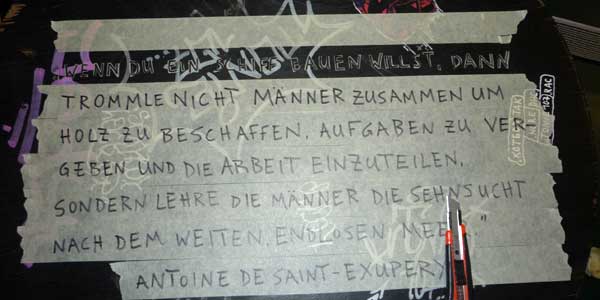 "WENN DU EIN SCHIFF BAUEN WILLST, DANN
TROMMLE NICHT MÄNNER ZUSAMMEN UM
HOLZ ZU BESCHAFFEN, AUFGABEN ZU VER-
GEBEN UND DIE ARBEIT EINZUTEILEN,
SONDERN LEHRE DIE MÄNNER DIE SEHNSUCHT
NACH DEM WEITEN, ENDLOSEN MEER."
ANTOINE DE SAINT-EXUPERY